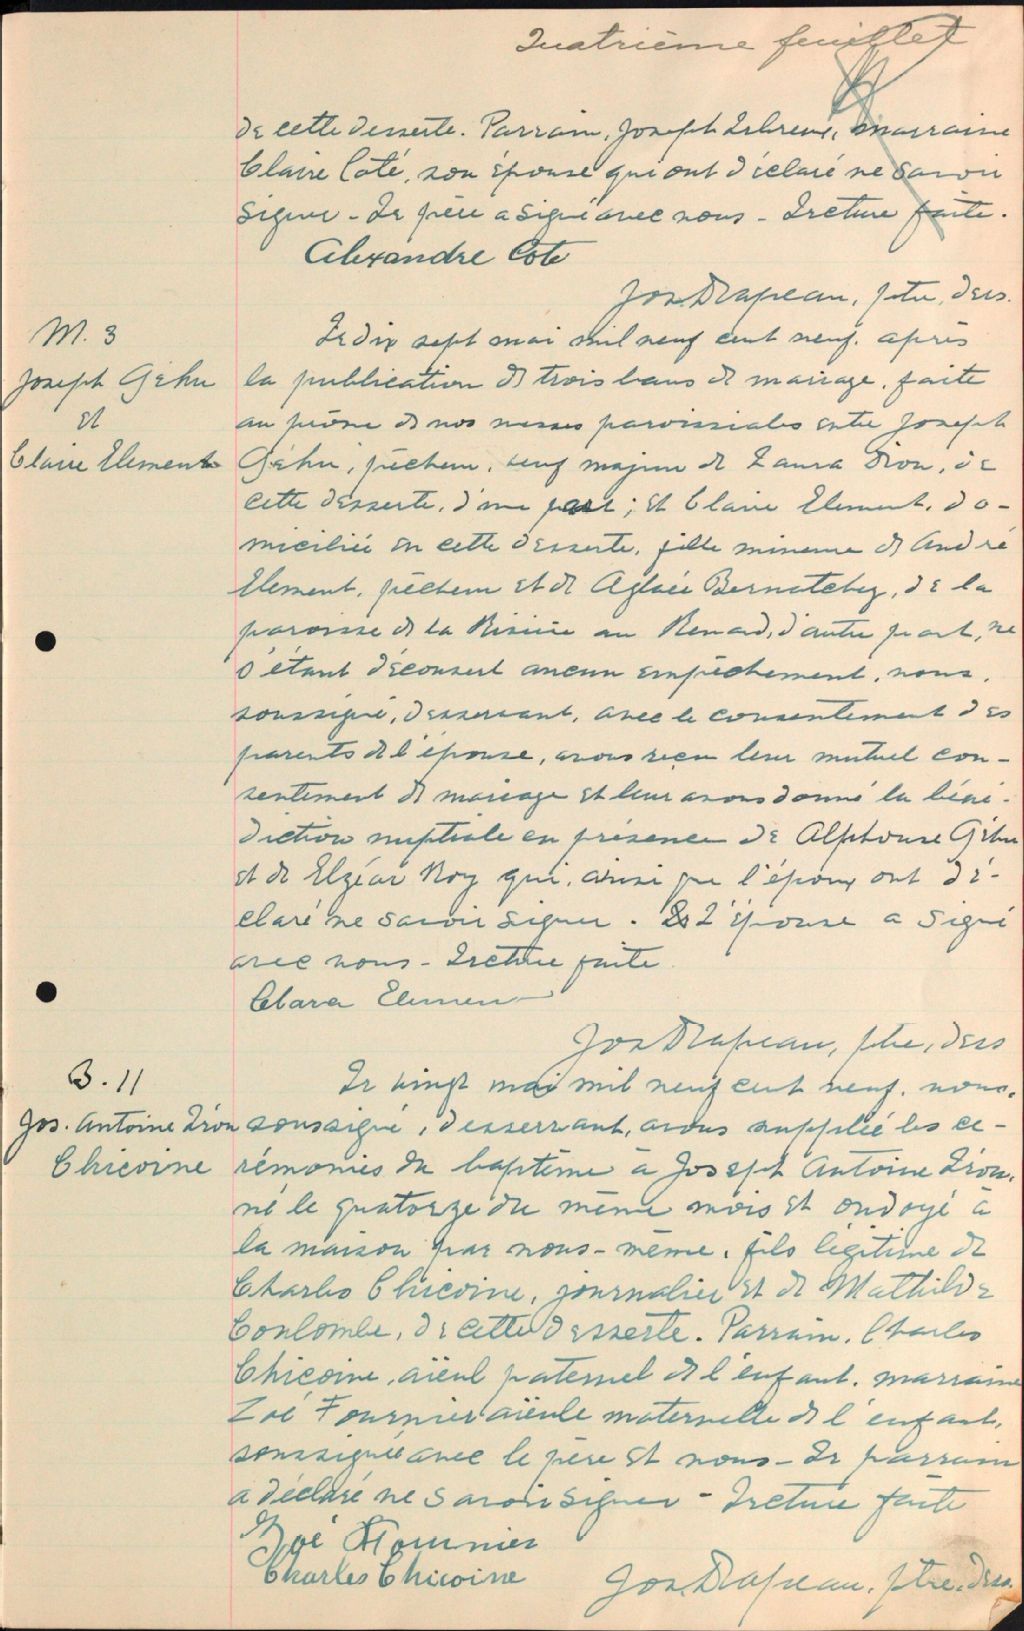 Quatrième feuillet
de cette desserte. Parrain, Joseph Lebreux, marraine
Claire Coté, son épouse qui ont déclaré ne savoir
signer - Le père a signé avec nous - Lecture faite.
Alexandre Cote
Jos. Drapeau, ptre, dess.
M. 3
Joseph Géhu
et
Claire Element
Le dix sept mai mil neuf cent neuf, après
la publication de trois bans de mariage, faite
au prône de nos messes paroissiales entre Joseph
Géhu, pêcheur, veuf majeur de Laura Dion, de
cette desserte, d'une part; et Claire Element, do-
miciliée en cette desserte, fille mineure de André
Element, pêcheur et de Aglaée Bernatchez, de la
paroisse de la Rivière au Renard, d'autre part, ne
s'étant découvert aucun empêchement, nous,
soussigné, desservant, avec le consentement des
parents de l'épouse, avons reçu leur mutuel con-
sentement de mariage et leur avons donné la béné-
diction nuptiale en présence de Alphonse Géhu
et de Elzéar Roy qui, ainsi que l'époux ont dé-
claré ne savoir signer. L'épouse a signé
avec nous - Lecture faite
Clara Element
Jos. Drapeau, ptre, dess
B. 11
Jos. Antoine Léon
Chicoine
Le vingt mai mil neuf cent neuf, nous,
soussigné, desservant, avons supplié les cé-
rémonies du baptême à Joseph Antoine Léon,
né le quatorze du même mois et ondoyé à
la maison par nous-même, fils légitime de
Charles Chicoine, journalier et de Mathilde
Coulombe, de cette desserte. Parrain, Charles
Chicoine, aïeul paternel de l'enfant, marraine
Zoé Fournier aïeule maternelle de l'enfant,
soussignée avec le père et nous - Le parrain
a déclaré ne savoir signer - Lecture faite
Zoé Fournier
Charles Chicoine
Jos. Drapeau, ptre, dess.